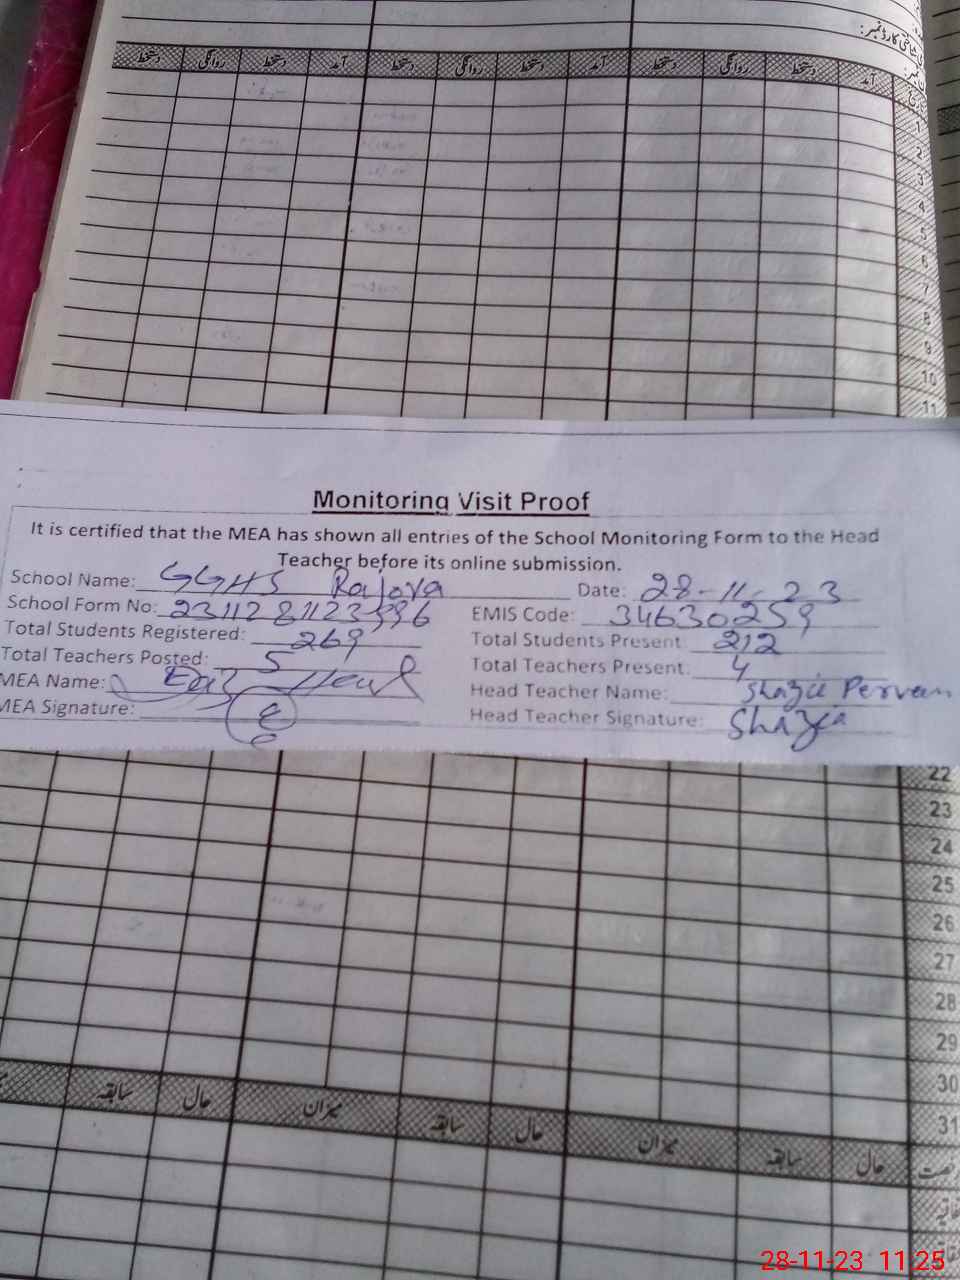 شناختی کارڈ نمبر:
دستخط روانگی دستخط آمد دستخط روانگی دستخط آمد دستخط روانگی دستخط آمد
1
2
3
4
5
6
7
8
9
10
11
Monitoring Visit Proof
It is certified that the MEA has shown all entries of the School Monitoring Form to the Head
Teacher before its online submission.
School Name: GGHS Rajoya Date: 28-11-23
School Form No: EMIS Code: 34630259
Total Students Registered: 269 Total Students Present: 212
Total Teachers Posted: 5 Total Teachers Present: 4
MEA Name: Head Teacher Name: Shazia Perveen
MEA Signature: Head Teacher Signature: Shazia
22
23
24
25
26
27
28
29
30
31
سابقہ حال میزان سابقہ حال میزان سابقہ حال
28-11-23 11:25